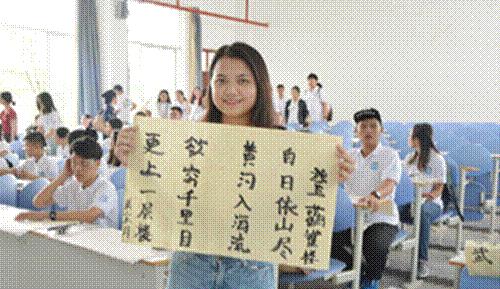 登鹳雀楼
白日依山尽
黄河入海流
欲穷千里目
更上一层楼
武